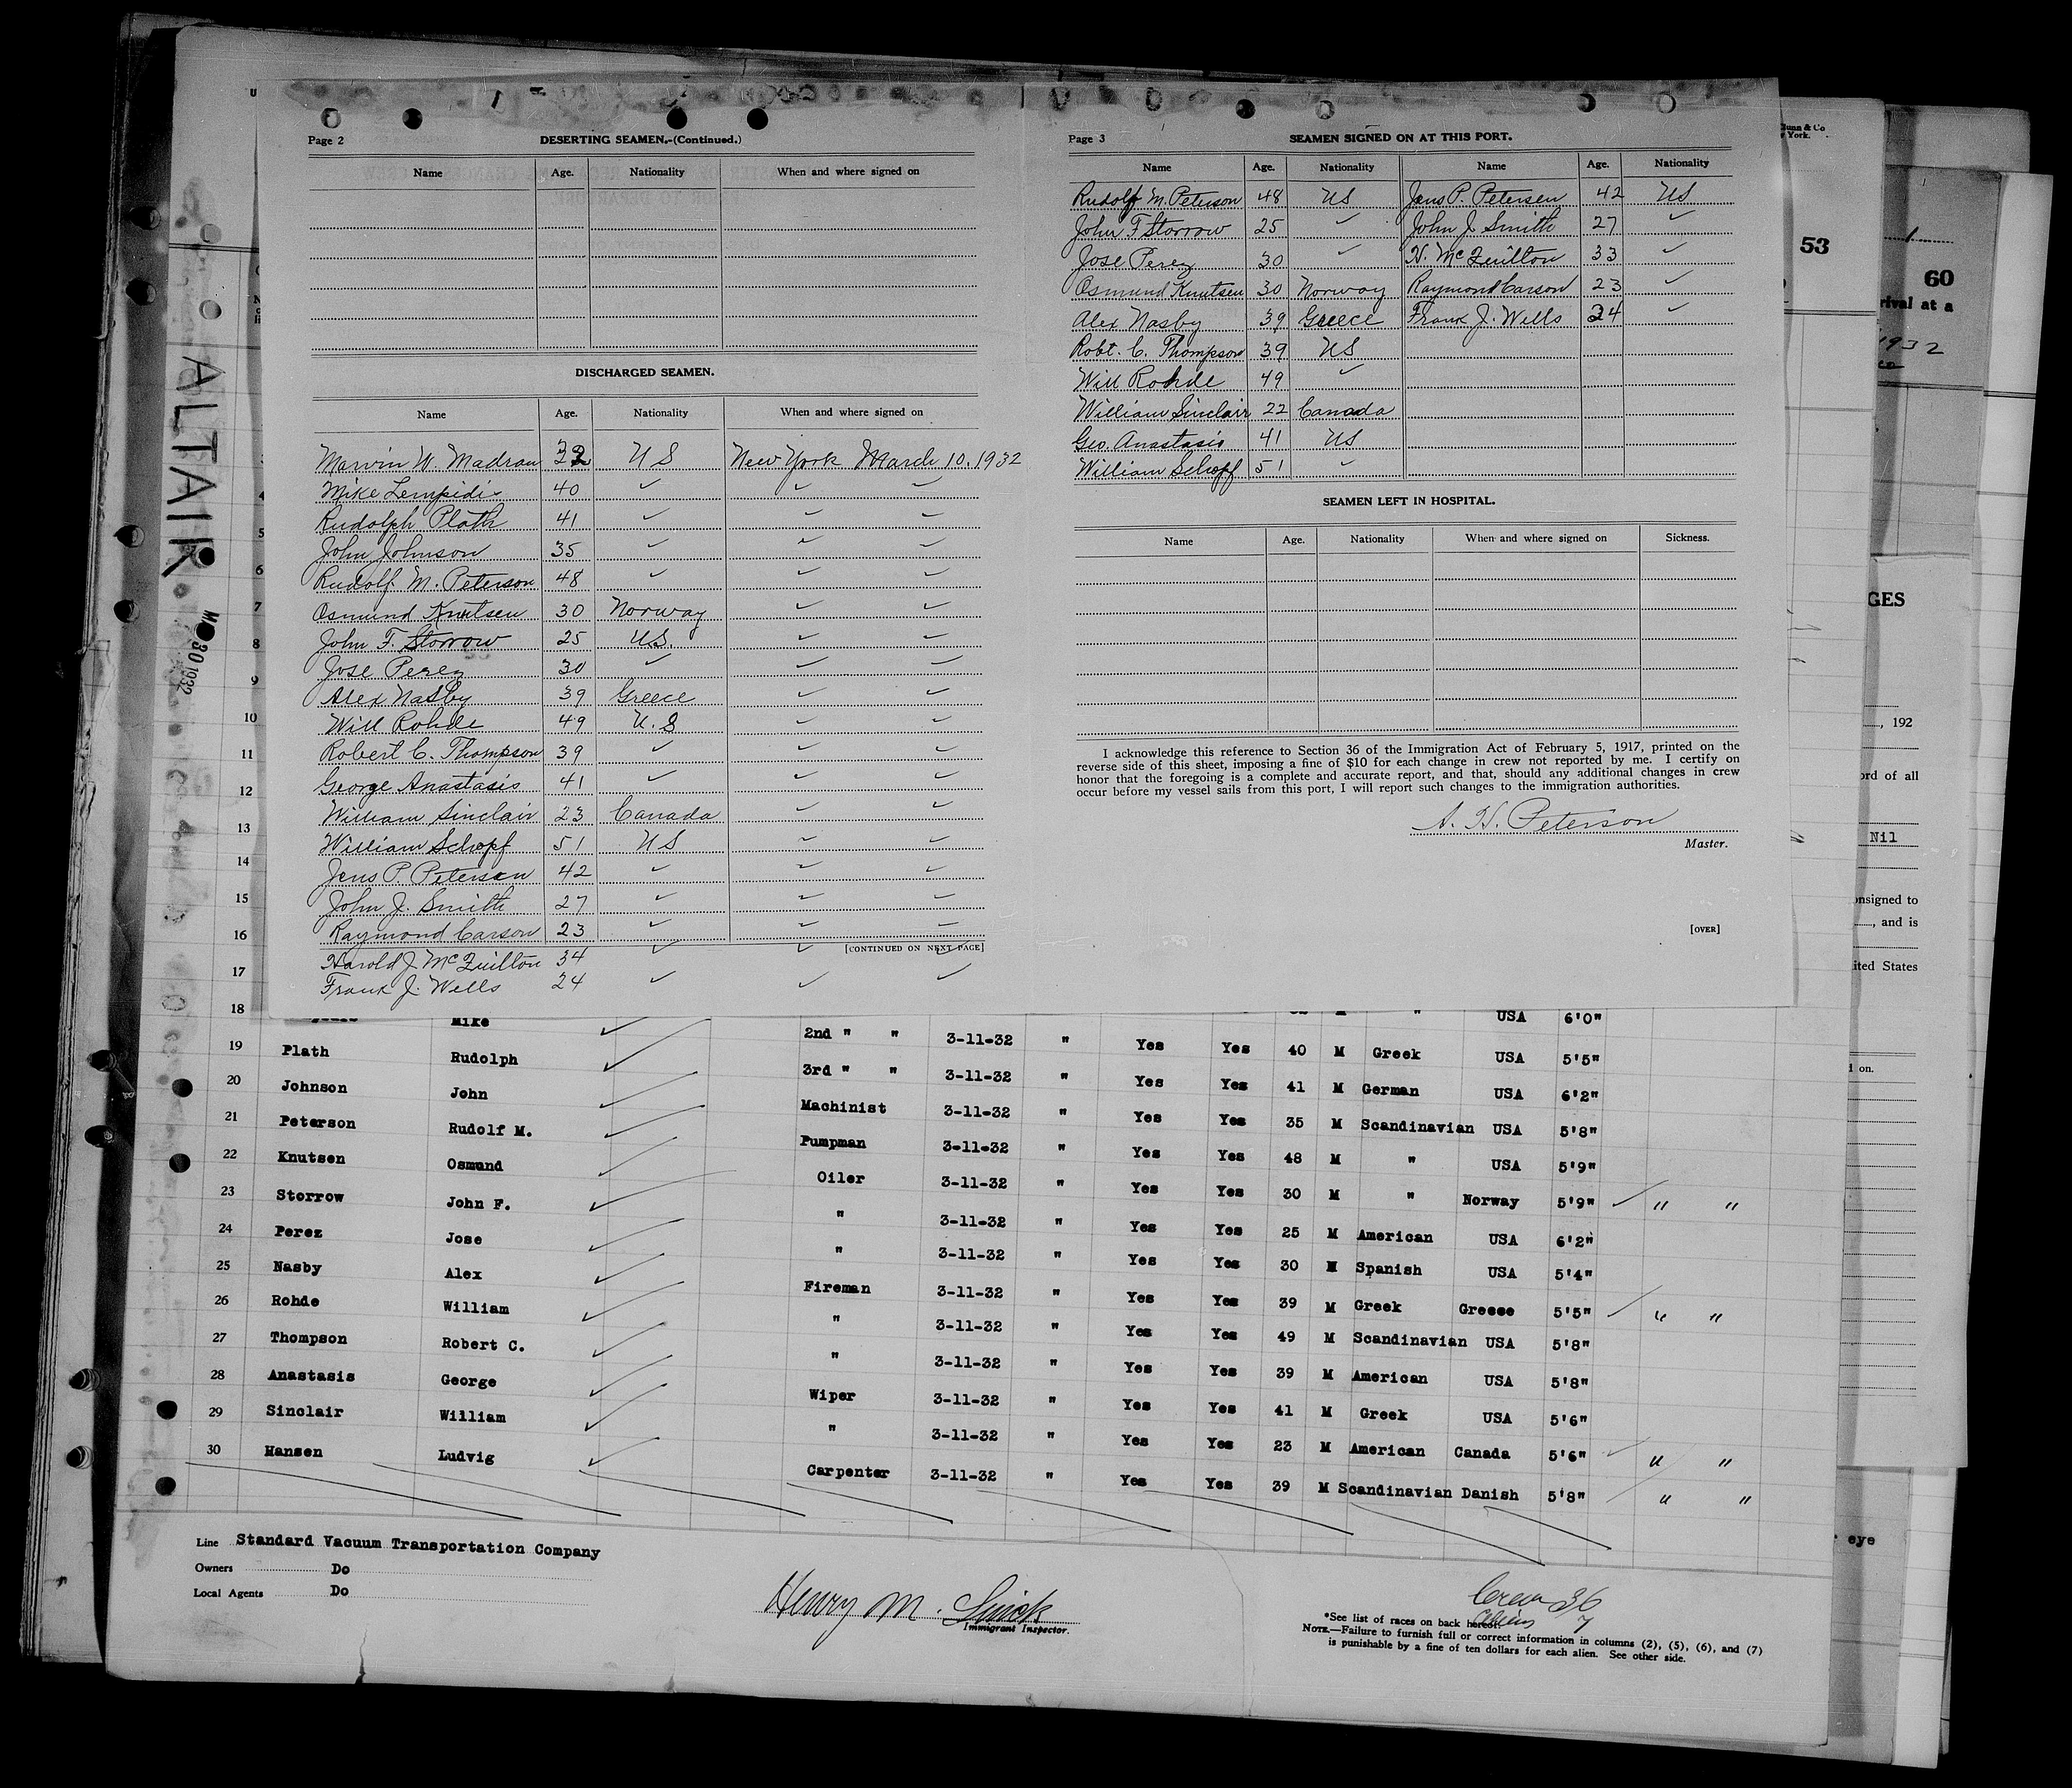 ALTAIR
MAR 30 1932
Page 2
DESERTING SEAMEN.-(Continued.)
Name Age. Nationality When and where signed on
DISCHARGED SEAMEN.
Name Age. Nationality When and where signed on
Marvin W. Madran 32 U S New York March 10, 1932
Mike Lempidis 40 ✓ ✓ ✓
Rudolph Plath 41 ✓ ✓ ✓
John Johnson 35 ✓ ✓ ✓
Rudolf M. Peterson 48 ✓ ✓ ✓
Osmund Knutsen 30 Norway ✓ ✓
John F. Storrow 25 U.S. ✓ ✓
Jose Perez 30 ✓ ✓ ✓
Alex Nasby 39 Greece ✓ ✓
Will Rohde 49 U.S ✓ ✓
Robert C. Thompson 39 ✓ ✓ ✓
George Anastasis 41 ✓ ✓ ✓
William Sinclair 23 Canada ✓ ✓
William Schopf 51 US ✓ ✓
Jens P. Petersen 42 ✓ ✓ ✓
John J. Smith 27 ✓ ✓ ✓
Raymond Carson 23 ✓ ✓ ✓
[CONTINUED ON NEXT PAGE]
Harold J. McQuilton 34 ✓ ✓ ✓
Frank J. Wells 24 ✓ ✓ ✓
Page 3
SEAMEN SIGNED ON AT THIS PORT.
Name Age. Nationality Name Age. Nationality
Rudolf M. Peterson 48 US Jens P. Petersen 42 US
John F Storrow 25 ✓ John J. Smith 27 ✓
Jose Perez 30 ✓ H. McQuilton 33 ✓
Osmund Knutsen 30 Norway Raymond Carson 23 ✓
Alex Nasby 39 Greece Frank J. Wells 24 ✓
Robt. C. Thompson 39 US
Will Rohde 49 ✓
William Sinclair 22 Canada
Geo. Anastasis 41 US
William Schopf 51 ✓
SEAMEN LEFT IN HOSPITAL.
Name Age. Nationality When and where signed on Sickness.
I acknowledge this reference to Section 36 of the Immigration Act of February 5, 1917, printed on the
reverse side of this sheet, imposing a fine of $10 for each change in crew not reported by me. I certify on
honor that the foregoing is a complete and accurate report, and that, should any additional changes in crew
occur before my vessel sails from this port, I will report such changes to the immigration authorities.
A. H. Peterson
Master.
[OVER]
53
60
rival at a
1932
GES
, 192
ord of all
Nil
onsigned to
, and is
ited States
on.
eye
4
5
6
7
8
9
10
11
12
13
14
15
16
17
18 Mike 2nd " " 3-11-32 " M " USA 6'0"
19 Plath Rudolph 3rd " " 3-11-32 " Yes Yes 40 M Greek USA 5'5"
20 Johnson John Machinist 3-11-32 " Yes Yes 41 M German USA 6'2"
21 Peterson Rudolf M. Pumpman 3-11-32 " Yes Yes 35 M Scandinavian USA 5'8"
22 Knutsen Osmund Oiler 3-11-32 " Yes Yes 48 M " USA 5'9"
23 Storrow John F. " 3-11-32 " Yes Yes 30 M " Norway 5'9" ✓ " "
24 Perez Jose " 3-11-32 " Yes Yes 25 M American USA 6'2"
25 Nasby Alex Fireman 3-11-32 " Yes Yes 30 M Spanish USA 5'4"
26 Rohde William " 3-11-32 " Yes Yes 39 M Greek Greece 5'5" ✓ " "
27 Thompson Robert C. " 3-11-32 " Yes Yes 49 M Scandinavian USA 5'8"
28 Anastasis George Wiper 3-11-32 " Yes Yes 39 M American USA 5'8"
29 Sinclair William " 3-11-32 " Yes Yes 41 M Greek USA 5'6"
30 Hansen Ludvig Carpenter 3-11-32 " Yes Yes 23 M American Canada 5'6" ✓ " "
Yes Yes 39 M Scandinavian Danish 5'8" " "
Line Standard Vacuum Transportation Company
Owners Do
Local Agents Do
Henry M.
Immigrant Inspector.
Crew 36
Aliens 7
*See list of races on back hereof.
NOTE.—Failure to furnish full or correct information in columns (2), (5), (6), and (7)
is punishable by a fine of ten dollars for each alien. See other side.